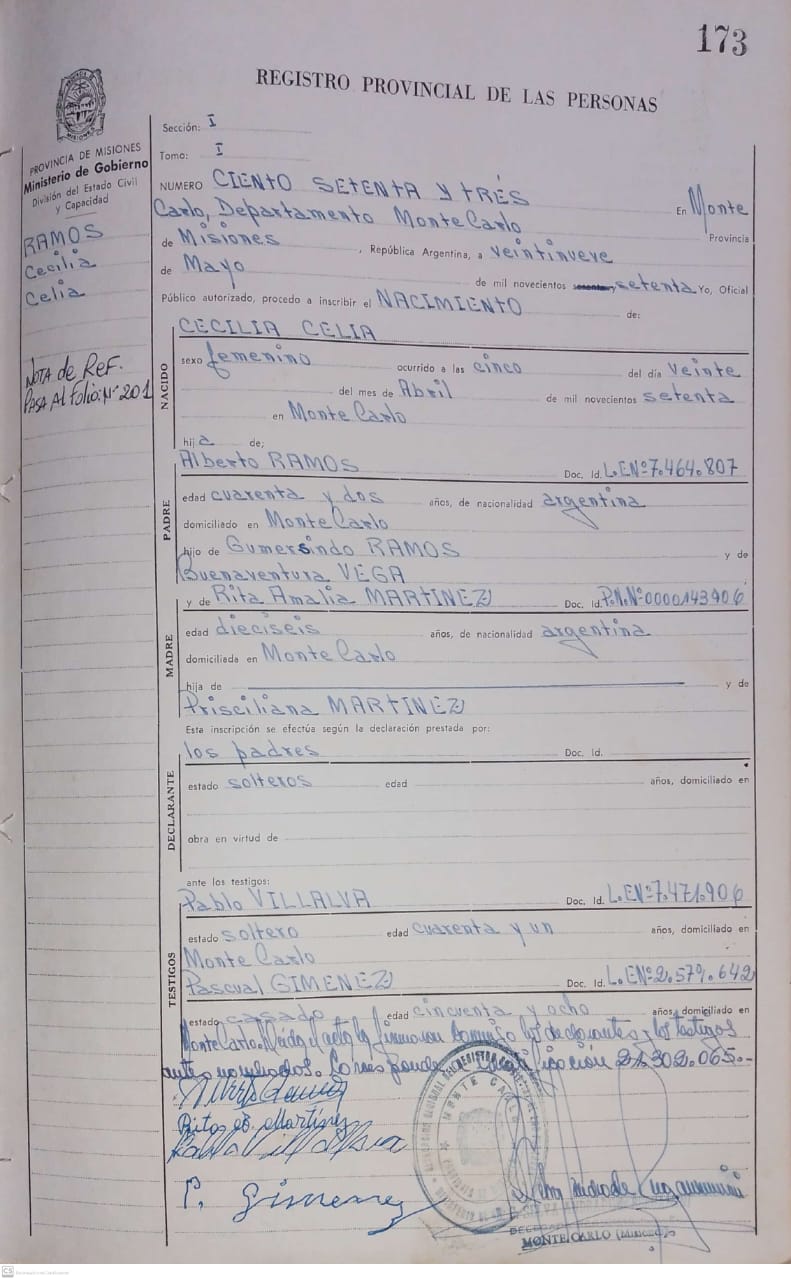 173
REGISTRO PROVINCIAL DE LAS PERSONAS
PROVINCIA DE MISIONES
Ministerio de Gobierno
División del Estado Civil
y Capacidad
RAMOS
Cecilia
Celia
NOTA de REF.
PASA Al Folio: Nº 201
Sección: I
Tomo: I
NUMERO CIENTO SETENTA Y TRÉS
En Monte
Carlo, Departamento Monte Carlo
Provincia
de Misiones, República Argentina, a veintinueve
de Mayo de mil novecientos setenta Yo, Oficial
Público autorizado, procedo a inscribir el NACIMIENTO de:
NACIDO
CECILIA CELIA
sexo femenino ocurrido a las cinco del día veinte
del mes de Abril de mil novecientos setenta
en Monte Carlo
hija de;
PADRE
Alberto RAMOS Doc. Id. L.ENº7.464.807
edad cuarenta y dos años, de nacionalidad argentina
domiciliado en Monte Carlo
hijo de Gumersindo RAMOS y de
Buenaventura VEGA
MADRE
y de Rita Amalia MARTINEZ Doc. Id. P.N.Nº0000143906
edad dieciseis años, de nacionalidad argentina
domiciliada en Monte Carlo
hija de y de
Prisciliana MARTINEZ
Esta inscripción se efectúa según la declaración prestada por:
DECLARANTE
los padres Doc. Id.
estado solteros edad años, domiciliado en
obra en virtud de
ante los testigos:
TESTIGOS
Pablo VILLALVA Doc. Id. L.ENº7.471.906
estado soltero edad cuarenta y un años, domiciliado en
Monte Carlo
Pascual GIMENEZ Doc. Id. L.ENº2.579.642
estado casado edad cincuenta y ocho años, domiciliado en
Monte Carlo. Leída el acta la firman conmigo los declarantes y los testigos
antes nombrados. Corresponde 21.302.065.-
Rita A. Martinez
Pablo Villalva
P. Gimenez
MONTE CARLO (Misiones)
CS